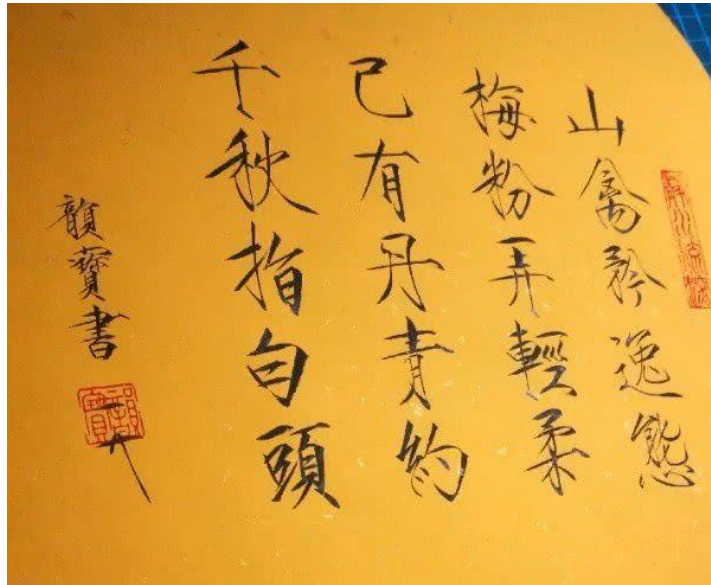 山禽矜逸態
梅粉弄輕柔
已有丹青約
千秋指白頭
韻寶書
韻寶